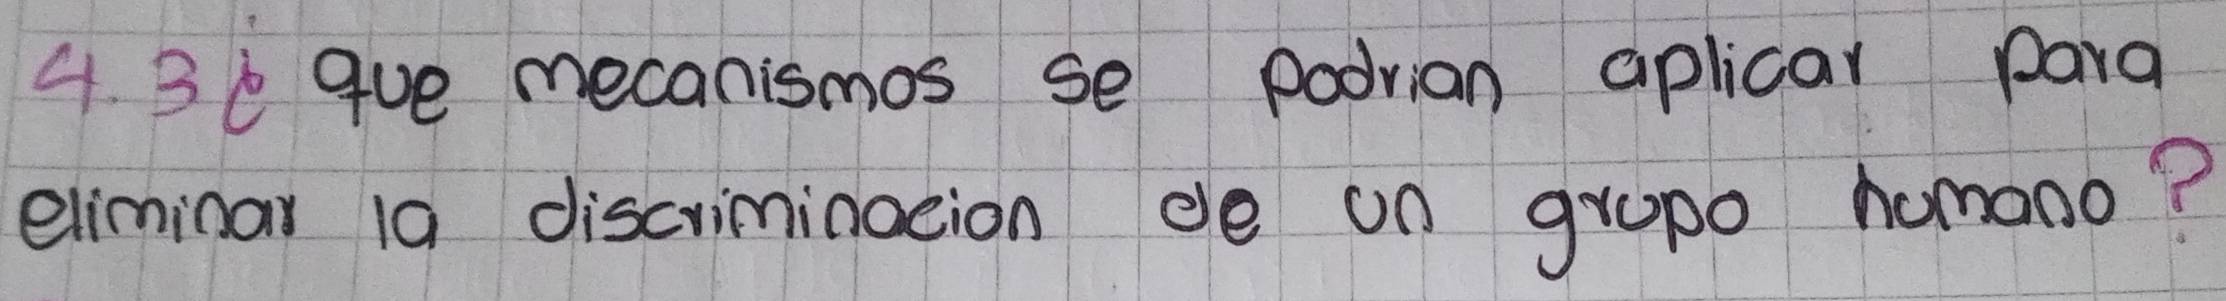 4.3 ¿ que mecanismos se podrian aplicar para
eliminar la discriminacion de un grupo humano?